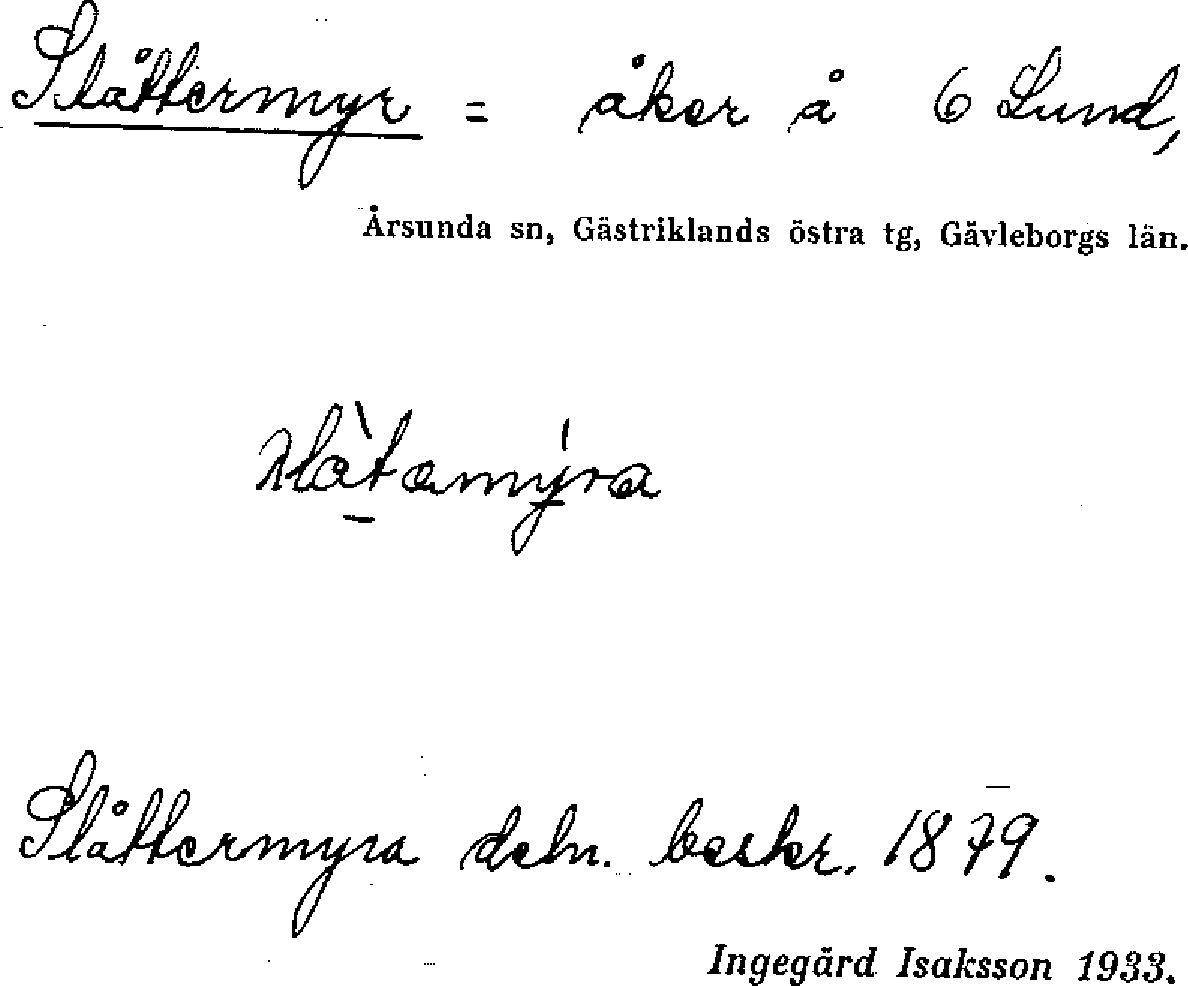 Slåttermyr = åker å 6 Lund,
Årsunda sn, Gästriklands östra tg, Gävleborgs län.
Slåttermyra deln. beskr. 1879.
Ingegärd Isaksson 1933.